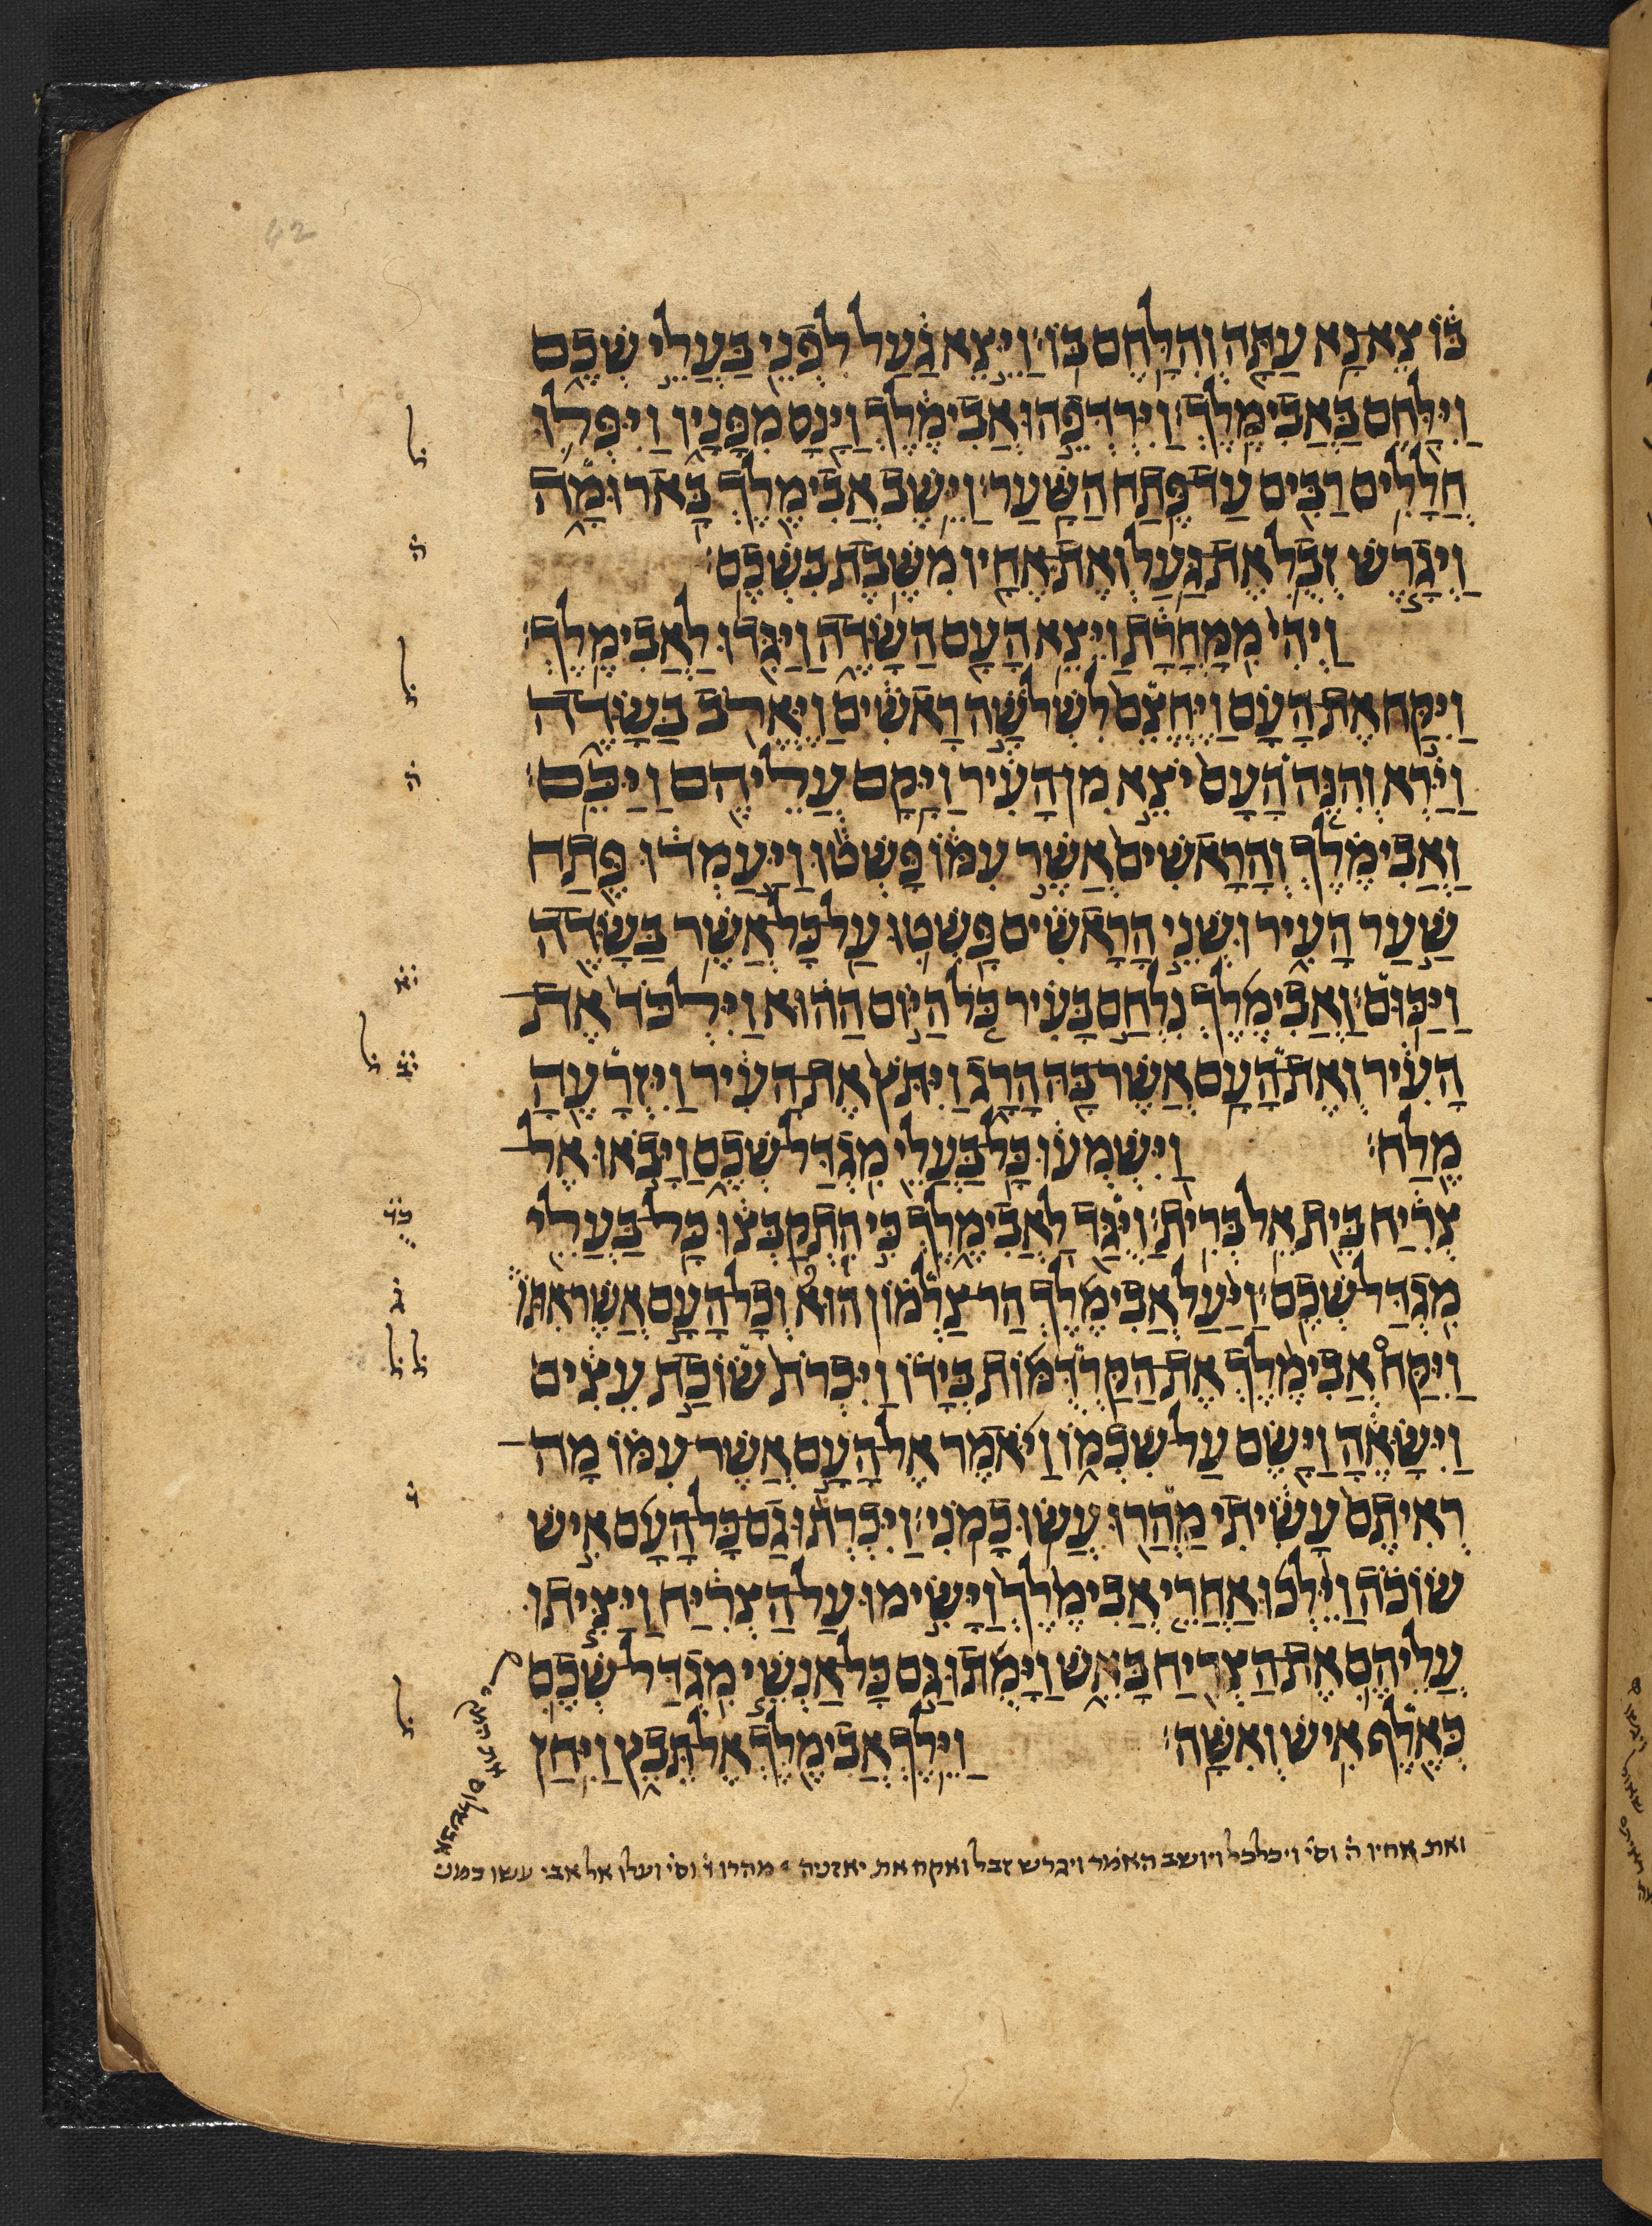 42
בּוֹ צֵא־נָא עַתָּה וְהִלָּחֶם בּוֹ׃ וַיֵּצֵא גַעַל לִפְנֵי בַּעֲלֵי שְׁכֶם
וַיִּלָּחֶם בַּאֲבִימֶלֶךְ׃ וַיִּרְדְּפֵהוּ אֲבִימֶלֶךְ וַיָּנָס מִפָּנָיו וַיִּפְּלוּ
ל
חֲלָלִים רַבִּים עַד־פֶּתַח הַשָּׁעַר׃ וַיֵּשֶׁב אֲבִימֶלֶךְ בָּארוּמָה
וַיְגָרֶשׁ זְבֻל אֶת־גַּעַל וְאֶת־אֶחָיו מִשֶּׁבֶת בִּשְׁכֶם׃
ה
וַיְהִי מִמָּחֳרָת וַיֵּצֵא הָעָם הַשָּׂדֶה וַיַּגִּדוּ לַאֲבִימֶלֶךְ׃
ל
וַיִּקַּח אֶת־הָעָם וַיֶּחֱצֵם לִשְׁלֹשָׁה רָאשִׁים וַיֶּאֱרֹב בַּשָּׂדֶה
וַיַּרְא וְהִנֵּה הָעָם יֹצֵא מִן־הָעִיר וַיָּקָם עֲלֵיהֶם וַיַּכֵּם׃
ה
וַאֲבִימֶלֶךְ וְהָרָאשִׁים אֲשֶׁר עִמּוֹ פָּשְׁטוּ וַיַּעַמְדוּ פֶּתַח
שַׁעַר הָעִיר וּשְׁנֵי הָרָאשִׁים פָּשְׁטוּ עַל־כָּל־אֲשֶׁר בַּשָּׂדֶה
וַיַּכּוּם׃ וַאֲבִימֶלֶךְ נִלְחָם בָּעִיר כֹּל הַיּוֹם הַהוּא וַיִּלְכֹּד אֶת־
יא
הָעִיר וְאֶת־הָעָם אֲשֶׁר־בָּהּ הָרָג וַיִּתֹּץ אֶת־הָעִיר וַיִּזְרָעֶהָ
יב ל
מֶלַח׃ וַיִּשְׁמְעוּ כָּל־בַּעֲלֵי מִגְדַּל־שְׁכֶם וַיָּבֹאוּ אֶל־
צְרִיחַ בֵּית אֵל בְּרִית׃ וַיֻּגַּד לַאֲבִימֶלֶךְ כִּי הִתְקַבְּצוּ כָּל־בַּעֲלֵי
כד
מִגְדַּל־שְׁכֶם׃ וַיַּעַל אֲבִימֶלֶךְ הַר־צַלְמוֹן הוּא וְכָל־הָעָם אֲשֶׁר־אִתּוֹ
ג
וַיִּקַּח אֲבִימֶלֶךְ אֶת־הַקַּרְדֻּמּוֹת בְּיָדוֹ וַיִּכְרֹת שׂוֹכַת עֵצִים
ל ל
וַיִּשָּׂאֶהָ וַיָּשֶׂם עַל־שִׁכְמוֹ וַיֹּאמֶר אֶל־הָעָם אֲשֶׁר־עִמּוֹ מָה־
רְאִיתֶם עָשִׂיתִי מַהֲרוּ עֲשׂוּ כָמֹנִי׃ וַיִּכְרְתוּ גַם־כָּל־הָעָם אִישׁ
ו
שׂוֹכֹה וַיֵּלְכוּ אַחֲרֵי אֲבִימֶלֶךְ וַיָּשִׂימוּ עַל־הַצְּרִיחַ וַיַּצִּיתוּ
עֲלֵיהֶם אֶת־הַצְּרִיחַ בָּאֵשׁ וַיָּמֻתוּ גַּם כָּל־אַנְשֵׁי מִגְדַּל־שְׁכֶם
כְּאֶלֶף אִישׁ וְאִשָּׁה׃ וַיֵּלֶךְ אֲבִימֶלֶךְ אֶל־תֵּבֵץ וַיִּחַן
ל
ואת אחיו ה וסי ויכלכל ויושב האמר ויגרש זבל ואקח את יאזניה מהרו ו וסי ועלו אל אבי עשו כמנ
אבשלום את